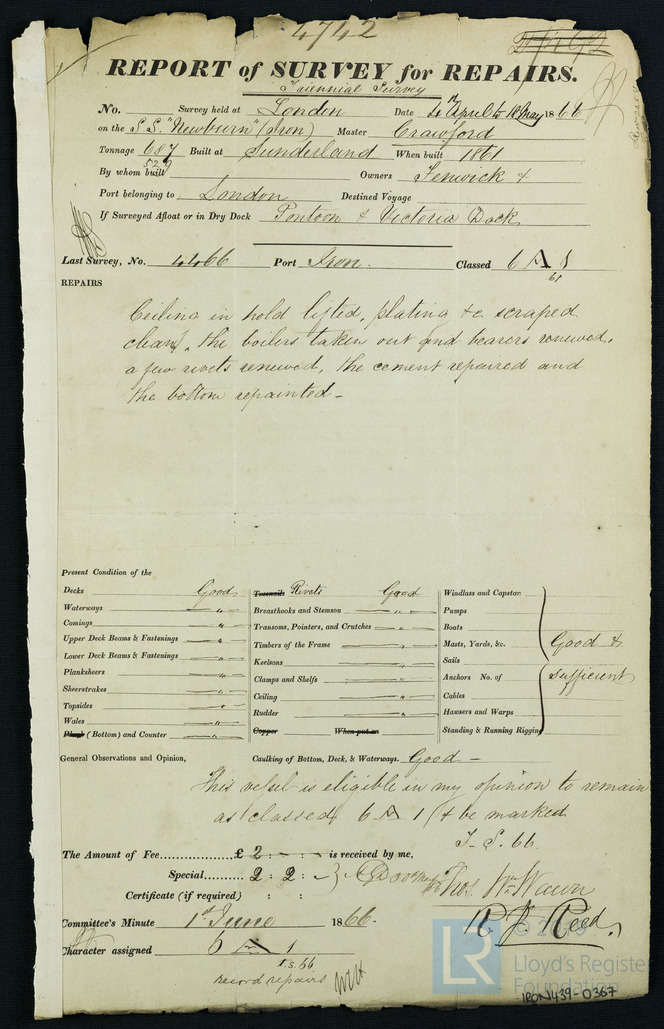 4742
REPORT of SURVEY for REPAIRS.
Triennial Survey
No. Survey held at London Date 4th April to 18 May 1866
on the S.S. "Newburn" (Iron) Master Crawford
Tonnage 687 Built at Sunderland When built 1861
529
By whom built Owners Fenwick &
Port belonging to London Destined Voyage
If Surveyed Afloat or in Dry Dock Pontoon & Victoria Dock
Last Survey, No. 4466 Port Iron. Classed 6 A 1
61
REPAIRS
Ceiling in hold lifted, plating &c scraped
clean, the boilers taken out and bearers renewed,
a few rivets renewed, the cement repaired and
the bottom repainted -
Present Condition of the
Decks Good Treenails Rivets Good Windlass and Capstan
Waterways " Breasthooks and Stemson " Pumps
Comings " Transoms, Pointers, and Crutches " Boats
Upper Deck Beams & Fastenings " Timbers of the Frame " Masts, Yards, &c. Good &
Lower Deck Beams & Fastenings " Keelsons " Sails
Planksheers " Clamps and Shelfs " Anchors No. of Sufficient
Sheerstrakes " Ceiling " Cables
Topsides " Rudder " Hawsers and Warps
Wales " Copper When put on Standing & Running Rigging
Plank (Bottom) and Counter "
General Observations and Opinion, Caulking of Bottom, Deck, & Waterways. Good -
This vessel is eligible in my opinion to remain
as classed 6 A 1 & be marked
T- S. 66
The Amount of Fee £ 2 : - : - is received by me,
Special 2 : 2 : -
Thos. Wm. Wawn
Certificate (if required) : :
R J Reed
Committee's Minute 1st June 1866.
Character assigned 6 A 1
T.S. 66
record repairs
LR
Lloyd's Register
Foundation
IRON439-0367